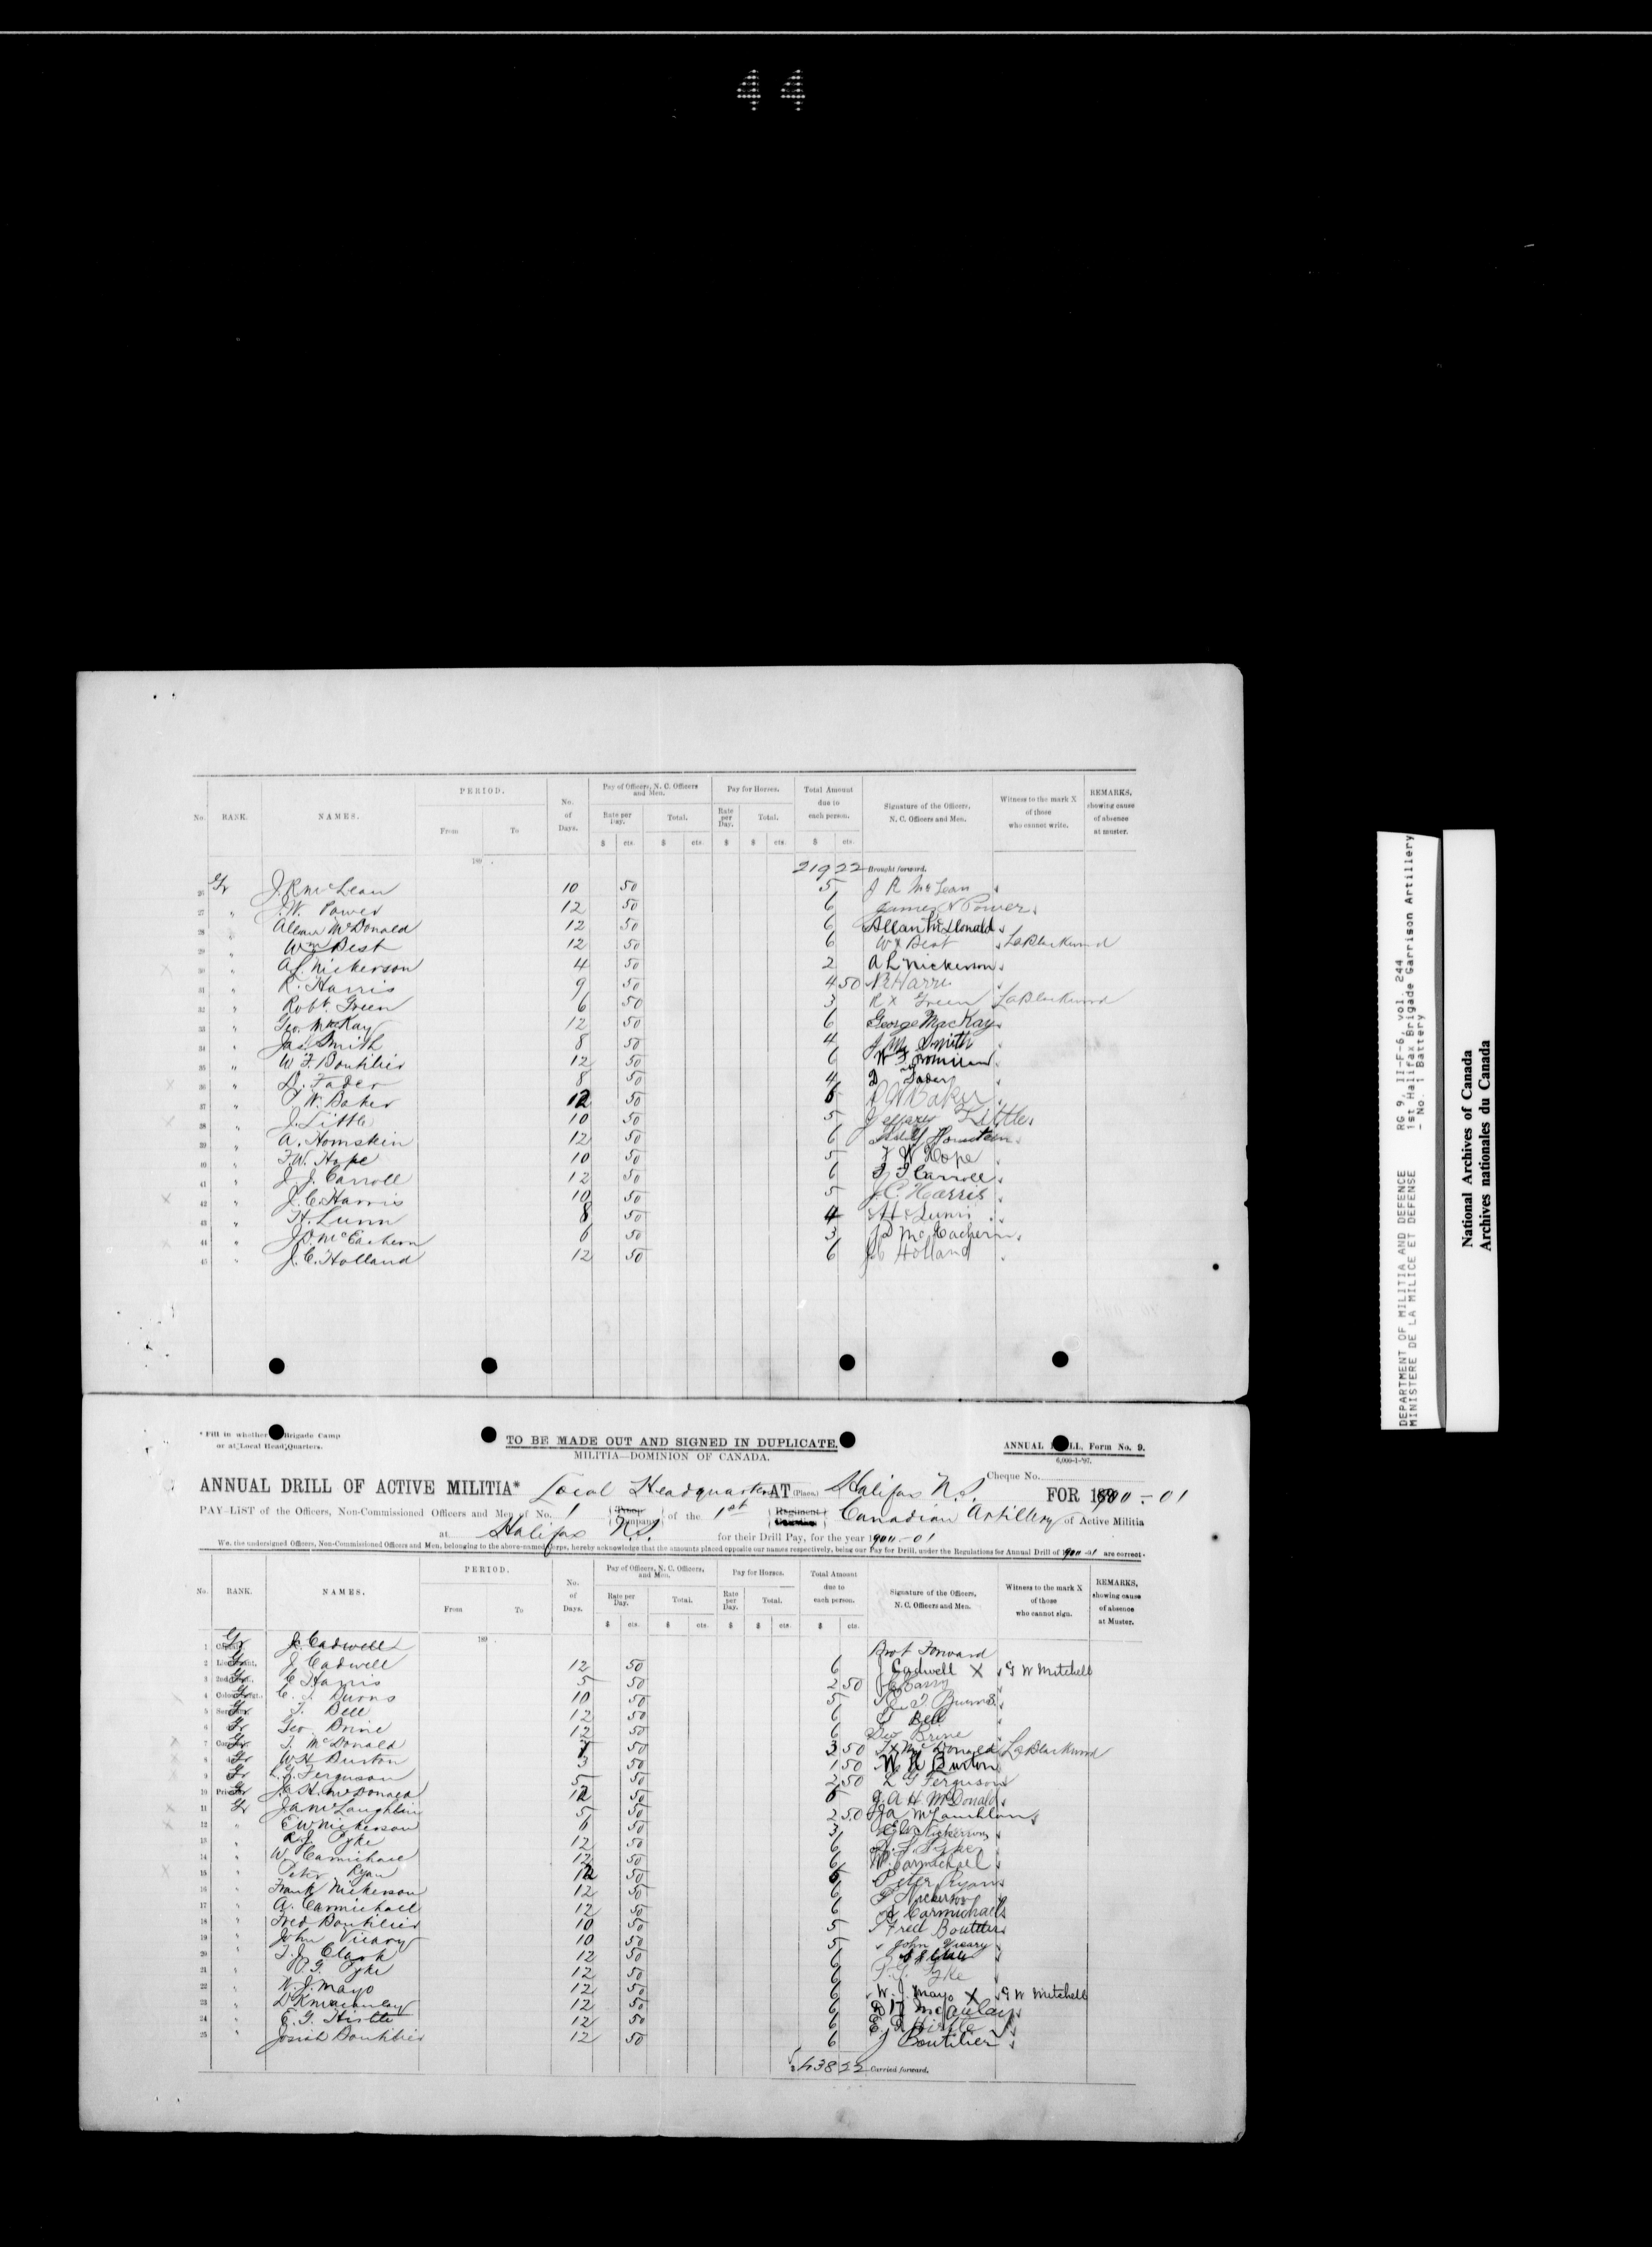 44
No. RANK. NAMES. PERIOD. From To No. of Days. Pay of Officers, N. C. Officers and Men. Rate per Day. Total. Pay for Horses. Rate per Day. Total. Total Amount due to each person. Signature of the Officers, N. C. Officers and Men. Witness to the mark X of those who cannot write. REMARKS, showing cause of absence at muster.
$ cts. $ cts. $ $ cts. $ cts.
189 . 219 22 Brought forward.
26 Gr J. R. McLean 10 50 5 J R McLean
27 " J. W. Power 12 50 6 James W Power
28 " Allan McDonald 12 50 6 Allan McDonald
29 " Wm Best 12 50 6 W X Best
30 " A. L. Nickerson 4 50 2 A L Nickerson
31 " R. Harris 9 50 4 50
32 " Robt. Green 6 50 3 R X Green
33 " Geo. McKay 12 50 6 George MacKay
34 " Jas. Smith 8 50 4 Smith
35 " W. F. Boutilier 12 50 6
36 " D. Fader 8 50 4 D Fader
37 " W. Baker 12 50 6 Baker
38 " J. Little 10 50 5 Little
39 " A. Homskin 12 50 6
40 " F. W. Hope 10 50 5 F W Hope
41 " J. J. Carroll 12 50 6 J J Carroll
42 " J. C. Harris 10 50 5 J. C. Harris
43 " H. Lunn 8 50 4 H Lunn
44 " J. D. McEachern 6 50 3 J D McEachern
45 " J. C. Holland 12 50 6 J C Holland
* Fill in whether Brigade Camp or at Local Head Quarters.
TO BE MADE OUT AND SIGNED IN DUPLICATE.
MILITIA—DOMINION OF CANADA.
ANNUAL DRILL, Form No. 9.
6,000-1-'97.
Cheque No.
ANNUAL DRILL OF ACTIVE MILITIA* Local Headquarters AT (Place.) Halifax N.S. FOR 1900-01
PAY-LIST of the Officers, Non-Commissioned Officers and Men of No. 1 Troop Company of the 1st Regiment Canadian Artillery of Active Militia
at Halifax N.S. for their Drill Pay, for the year 1900-01
We, the undersigned Officers, Non-Commissioned Officers and Men, belonging to the above-named Corps, hereby acknowledge that the amounts placed opposite our names respectively, being our Pay for Drill, under the Regulations for Annual Drill of 1900-01 are correct.
No. RANK. NAMES. PERIOD. From To No. of Days. Pay of Officers, N. C. Officers, and Men. Rate per Day. Total. Pay for Horses. Rate per Day. Total. Total Amount due to each person. Signature of the Officers, N. C. Officers and Men. Witness to the mark X of those who cannot sign. REMARKS, showing cause of absence at Muster.
$ cts. $ cts. $ $ cts. $ cts.
1 Gr J. Cadwell 189 . Brot Forward
2 Gr J. Cadwell 12 50 6 J Cadwell X G W Mitchell
3 Gr C Harris 5 50 2 50
4 Gr C. J. Burns 10 50 5 Burns
5 Gr T. Bell 12 50 6 T Bell
6 Gr Geo. Brine 12 50 6 Geo Brine
7 Gr T. McDonald 7 50 3 50 T X McDonald
8 Gr W. H. Burton 3 50 1 50 W H Burton
9 Gr L. G. Ferguson 5 50 2 50 L G Ferguson
10 Gr J. A. H. McDonald 12 50 6 J. A H McDonald
11 Gr J A McLaughlin 5 50 2 50 J A McLaughlan
12 " E W Nickerson 6 50 3 E W Nickerson
13 " A. J. Pyke 12 50 6
14 " W. Carmichael 12 50 6 W. Carmichael
15 " Peter Ryan 12 50 6 Peter Ryan
16 " Frank Nickerson 12 50 6 F Nickerson
17 " A. Carmichael 12 50 6 A Carmichael
18 " Fred Boutilier 10 50 5 Fred Boutilier
19 " John Vicary 10 50 5 John Vicary
20 " T. J. Clark 12 50 6
21 " P. G. Pyke 12 50 6 Pyke
22 " W. J. Mayo 12 50 6 W. J. Mayo X G W Mitchell
23 " D K Macaulay 12 50 6 McAulay
24 " E. G. Hirtle 12 50 6 E G Hirtle
25 " Josiah Boutilier 12 50 6 J Boutilier
$438 22 Carried forward.
DEPARTMENT OF MILITIA AND DEFENCE RG 9, II-F-6, vol. 244
MINISTERE DE LA MILICE ET DEFENSE 1st Halifax Brigade Garrison Artillery
- No. 1 Battery
National Archives of Canada
Archives nationales du Canada